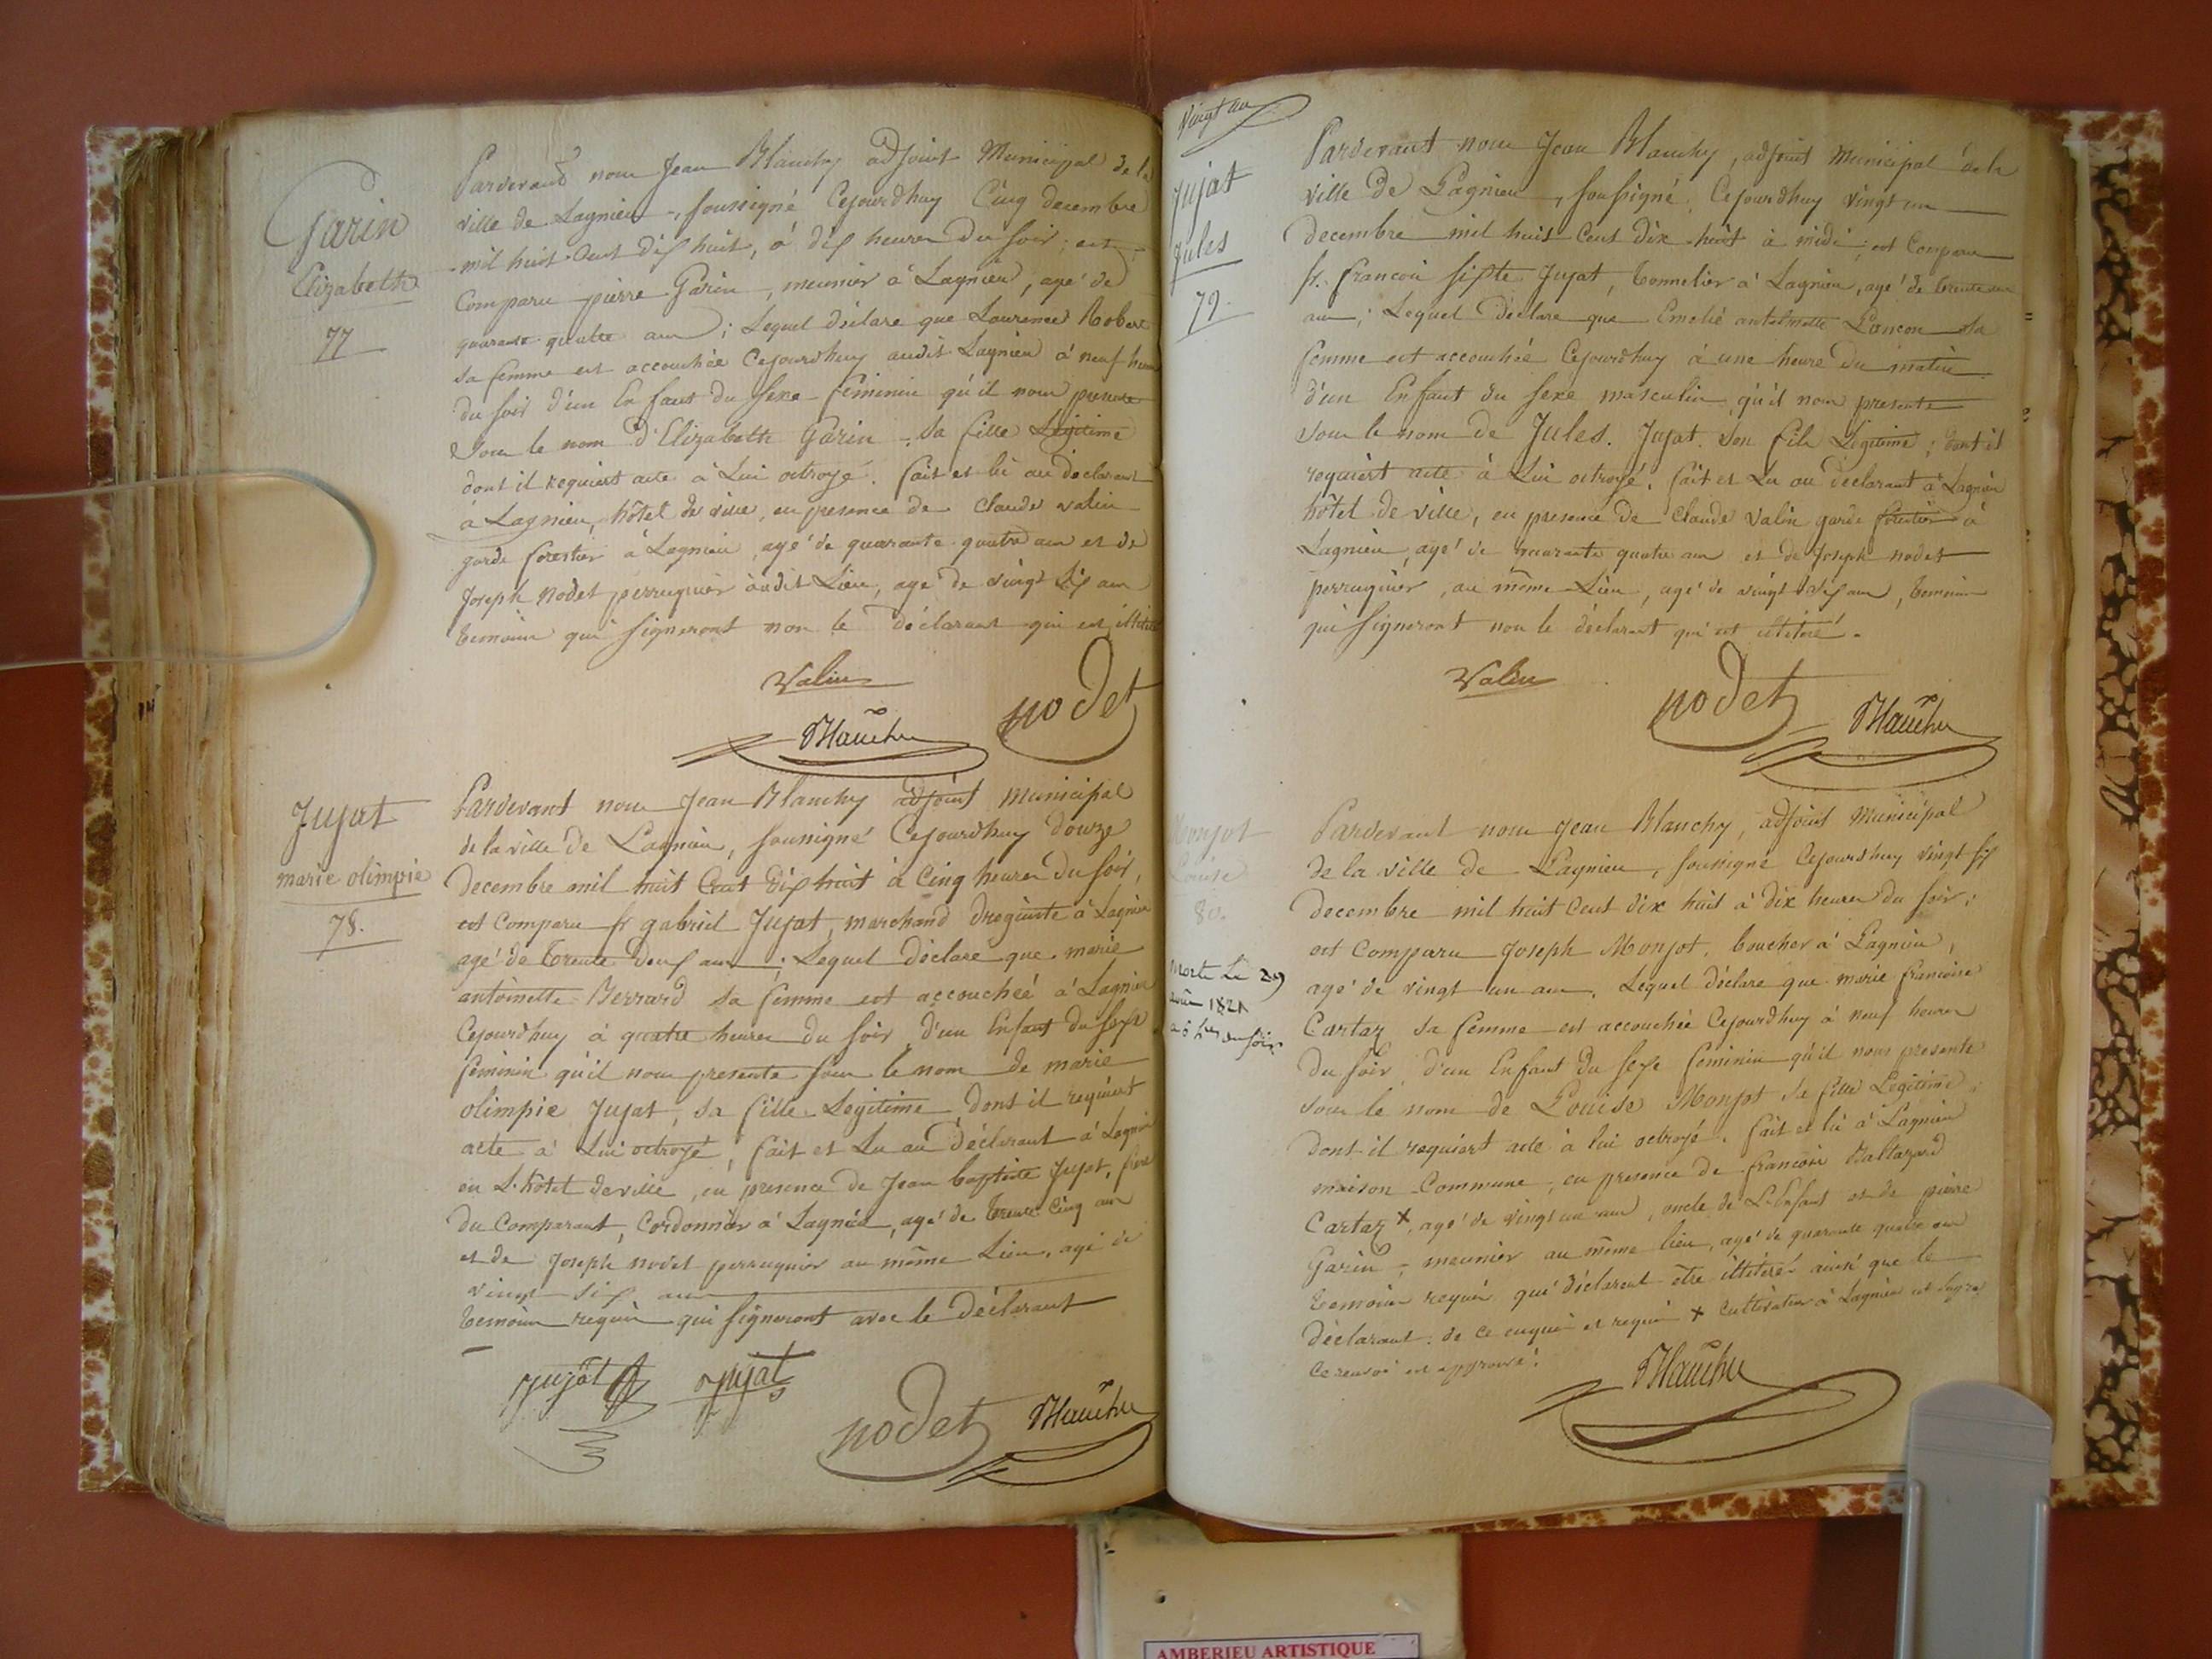 Garin
Elizabeth
77
Pardevant nous Jean Blanchy adjoint Municipal de la
ville de Lagnieu, soussigné Cejourdhuy Cinq decembre
mil huit Cent dix huit, à dix heures du soir, est
Comparu pierre Garin, meunier à Lagnieu, agé de
quarante quatre ans; Lequel déclare que Laurence Robert
sa femme est accouchée Cejourdhuy audit Lagnieu à neuf heures
du soir d'un Enfant du sexe feminin qu'il nous presente
sous le nom d'Elizabeth Garin sa fille Légitime
dont il requiert acte à Lui octroyé. fait et lù au declarant
à Lagnieu, hôtel de ville, en presence de Claude Valin
garde forestier à Lagnieu agé de quarante quatre ans et de
Joseph Nodet perruquier audit Lieu, agé de vingt six ans
temoins qui signeront non le déclarant qui est illitéré
Valin
nodet
Blanchy
Jujat
marie olimpie
78.
Pardevant nous Jean Blanchy adjoint Municipal
de la ville de Lagnieu, soussigné Cejourdhuy douze
Decembre mil huit Cent dix huit à Cinq heures du soir,
est Comparu sr gabriel Jujat, marchand droguiste à Lagnieu
agé de trente deux ans; Lequel déclare que marie
antoinette Berrard sa femme est accouchée à Lagnieu
Cejourdhuy à quatre heures du soir d'un Enfant du sexe
féminin qu'il nous presente sous le nom de marie
olimpie Jujat, sa fille Légitime, dont il requiert
acte à Lui octroyé, fait et Lu au déclarant à Lagnieu
en L'hôtel de ville, en presence de Jean baptiste Jujat, frere
du Comparant, Cordonnier à Lagnieu, agé de trente Cinq ans
et de Joseph nodet perruquier au même Lieu, agé de
vingt six ans
temoins requis qui signeront avec le Déclarant
Jujat Jujat
nodet Blanchy
Vingt un
Jujat
Jules
79.
Pardevant nous Jean Blanchy, adjoint Municipal de la
ville de Lagnieu, soussigné, Cejourdhuy vingt un
decembre mil huit Cent dix huit à midi, est Comparu
sr. francois sixte Jujat, tonnelier à Lagnieu, agé de trente un
ans; Lequel déclare que Emelie antelmette Lancon sa
femme est accouchée Cejourdhuy à une heure du matin
d'un Enfant du sexe masculin, qu'il nous presente
sous le nom de Jules. Jujat. son fils Légitime; dont il
requiert acte à Lui octroyé. fait et Lu au déclarant à Lagnieu
hôtel de ville, en presence de Claude Valin garde forestier à
Lagnieu agé de quarante quatre ans et de Joseph nodet
perruquier, au même Lieu, agé de vingt six ans, temoins
qui signeront non le déclarant qui est illitéré.
Valin
nodet
Blanchy
Monjot
Louise
80.
Morte Le 29
1821
a 6 hes du soir
Pardevant nous Jean Blanchy, adjoint Municipal
de la ville de Lagnieu, soussigné Cejourdhuy vingt six
decembre mil huit Cent dix huit à dix heures du soir;
est Comparu Joseph Monjot, boucher à Lagnieu,
agé de vingt un ans. Lequel déclare que marie francoise
Cartaz sa femme est accouchée Cejourdhuy à neuf heures
du soir, d'un Enfant du sexe feminin qu'il nous presente
sous le nom de Louise Monjot sa fille Légitime;
dont il requiert acte à lui octroyé. fait et lù à Lagnieu
maison Commune, en presence de francois Baltazard
Cartaz X, agé de vingt un ans, oncle de L'Enfant et de pierre
Garin, meunier au même lieu, agé de quarante quatre ans
temoins requis qui déclarent être illitérés ainsi que le
déclarant. de ce enquis et requis X Cultivateur à Lagnieu
Ce renvoi est approuvé.
Blanchy
AMBERIEU ARTISTIQUE